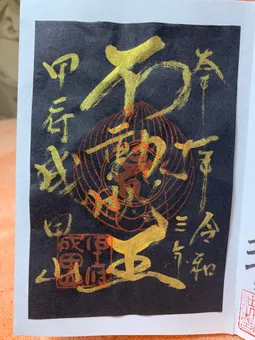 奉拝
令和
三年
不動明王
甲府
成田山